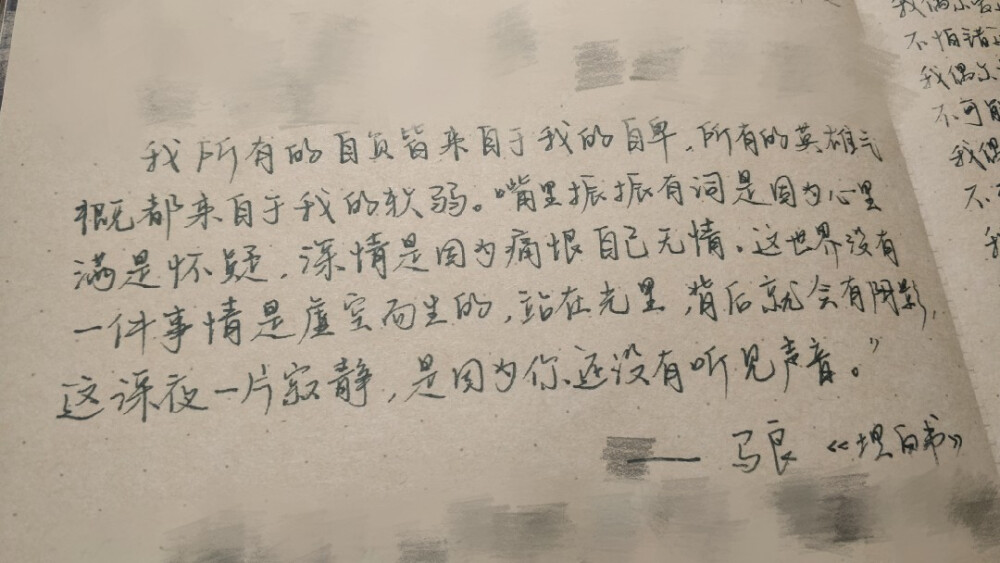 我所有的自负皆来自于我的自卑，所有的英雄气
概都来自于我的软弱。嘴里振振有词是因为心里
满是怀疑，深情是因为痛恨自己无情。这世界没有
一件事情是虚空而生的，站在光里，背后就会有阴影，
这深夜一片寂静，是因为你还没有听见声音。”
—— 马良《坦白书》
我偶尔
不怕
我偶尔
不可
我偶
不
我